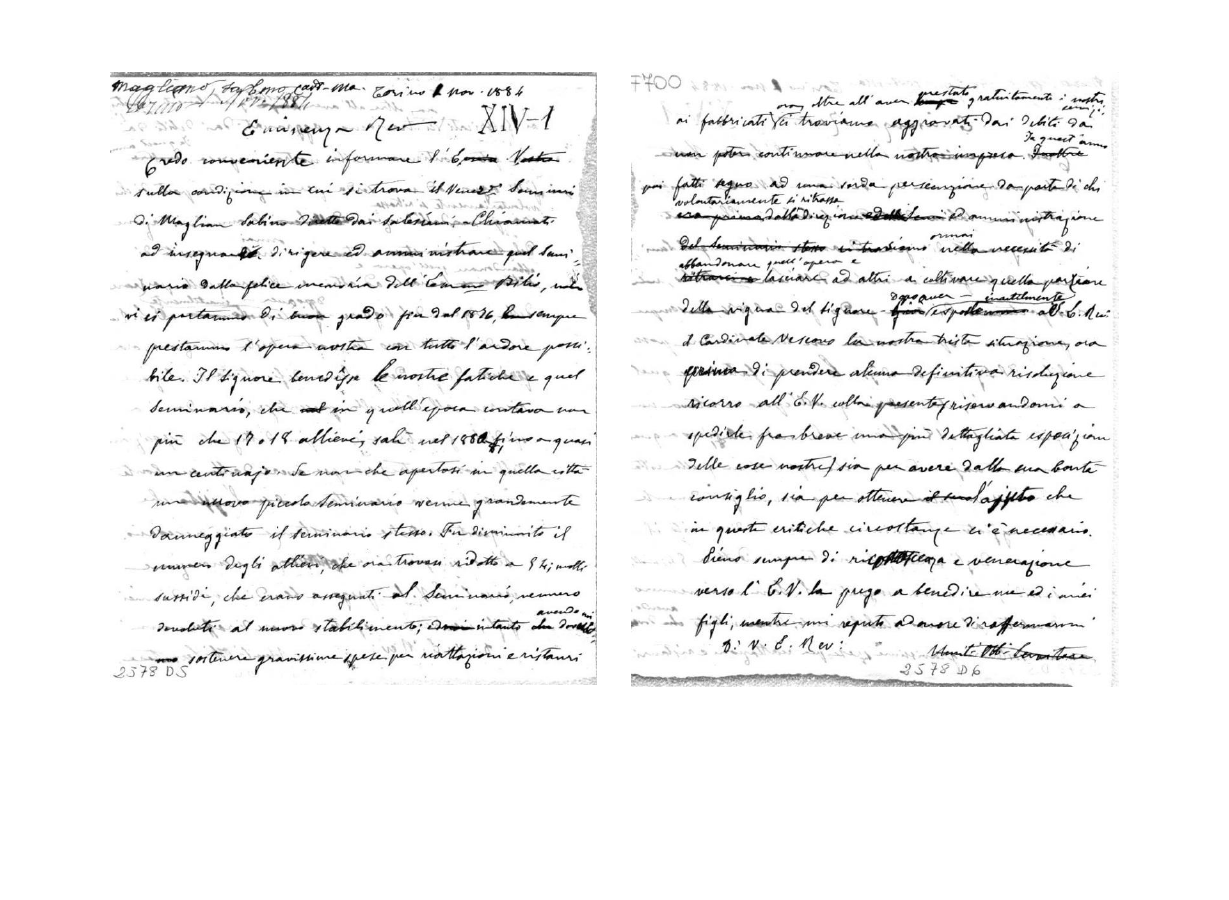 Magliano, Torino 1 nov. 1884
Eminenza Rev
XIV-1
Credo conveniente informare l'E. Vostra
sulla condizione in cui si trova il Vener. Seminari
di Maglian Sabino dai Salesiani. Chiamati
ad insegnare, dirigere ed amministrare quel Semi-
nario dalla felice memoria dell' Bilio, noi
vi ci portammo di buon grado fin dal 1876, sempre
prestammo l'opera nostra con tutto l'ardore possi-
bile. Il Signore benedisse le nostre fatiche e quel
Seminario, che in quell'epoca contava non
più che 17 o 18 allievi, salì nel 188 fino a quasi
un centinajo. Se non che apertosi in quella città
un nuovo piccolo Seminario venne grandemente
danneggiato il seminario stesso. Fu diminuito il
numero degli allievi, che ora trovasi ridotto a 54; molti
sussidi, che erano assegnati al Seminario, vennero
devoluti al nuovo stabilimento; intanto avendo noi
sostenere gravissime spese per riattazioni e ristauri
2578 D5
7700
ai fabbricati ora, oltre all'aver prestato gratuitamente i nostri
ci troviamo aggravati dai debiti da
non poter continuare nella nostra impresa. Inoltre In quest'anno
poi fatti segno ad una sorda persecuzione da parte di chi
volontariamente si ritrasse
era prima dalla direzione e amministrazione
del Seminario stesso ci troviamo ormai nella necessità di
abbandonare quell'opera e
ritirarci e lasciare ad altri a coltivare quella porzione
della vigna del Signore. Dopo aver inutilmente
esposto al V. E. Rev
il Cardinale Vescovo la nostra trista situazione, ora
prima di prendere alcuna definitiva risoluzione
ricorro all'E.V. colla presente (riservandomi a
spedirle fra breve una più dettagliata esposizione
delle cose nostre) sia per avere dalla sua bontà
consiglio, sia per ottenere il suo l'appoggio che
in queste critiche circostanze ci è necessario.
Pieno sempre di riconoscenza e venerazione
verso l'E.V. la prego a benedire me ed i miei
figli, mentre mi reputo ad onore di raffermarmi
D. V. E. Rev:
2578 D6